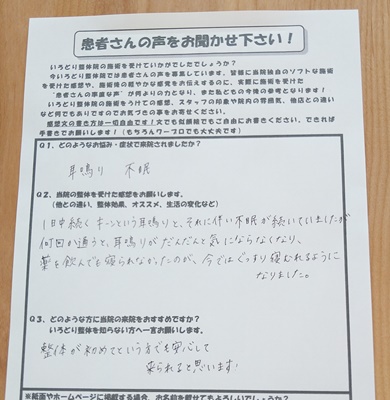 患者さんの声をお聞かせ下さい！
いろどり整体院の施術を受けていかがでしたでしょうか？
今いろどり整体院では患者さんの声を募集しています。皆様に当院独自のソフトな施術
を受けた感想や、施術後の軽やかな感覚をお伝えするのに、実際に施術を受けた
“患者さんの率直な声”が何よりの力となり、また私どもの今後の参考となります！
いろどり整体院の施術をうけての感想、スタッフの印象や院内の雰囲気、他店との違い
など何でもありですのでお気づきの事をお書きください。
感想文の書き方は一切自由です！文でも似顔絵でもご自由にお書きください。できれば
手書きでお願いします！（もちろんワープロでも大丈夫です）
Q１、どのようなお悩み・症状で来院されましたか？
耳鳴り　不眠
Q２、当院の整体を受けた感想をお願いします。
（他との違い、整体効果、オススメ、生活の変化など）
1日中続くキーンという耳鳴りと、それに伴い不眠が続いていましたが
何回か通うと、耳鳴りがだんだんと気にならなくなり、
薬を飲んでも寝られなかったのが、今ではぐっすり寝むれるように
なりました。
Q３、どのような方に当院の来院をおすすめですか？
いろどり整体を知らない方へ一言お願いします。
整体が初めてという方でも安心して
来られると思います
※紙面やホームページに掲載する場合、お名前を載せてもよろしいでしょうか？